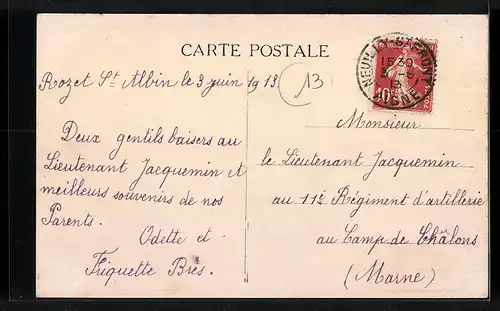 CARTE POSTALE
Rozet St Albin le 3 juin 1913.
13
NEUILLY-ST-FRONT
15 30
3 -6
13
AISNE
10
Deux gentils baisers au
Lieutenant Jacquemin et
meilleurs souvenirs de nos
Parents.
Odette et
Friquette Brés.
Monsieur
le Lieutenant Jacquemin
au 11e Régiment d'artillerie
au Camp de Châlons
(Marne)